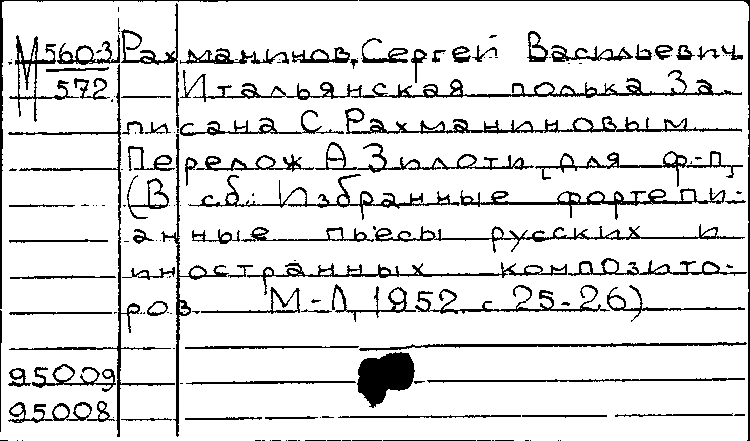 М 5603 Рахманинов, Сергей Васильевич
572 Итальянская полька. За-
писана С. Рахманиновым
Перелож. А. Зилоти [для ф-п.]
(В сб.: Избранные фортепи-
анные пьесы русских и
иностранных композито-
ров М-Л, 1952 с 25-26)
95009
95008